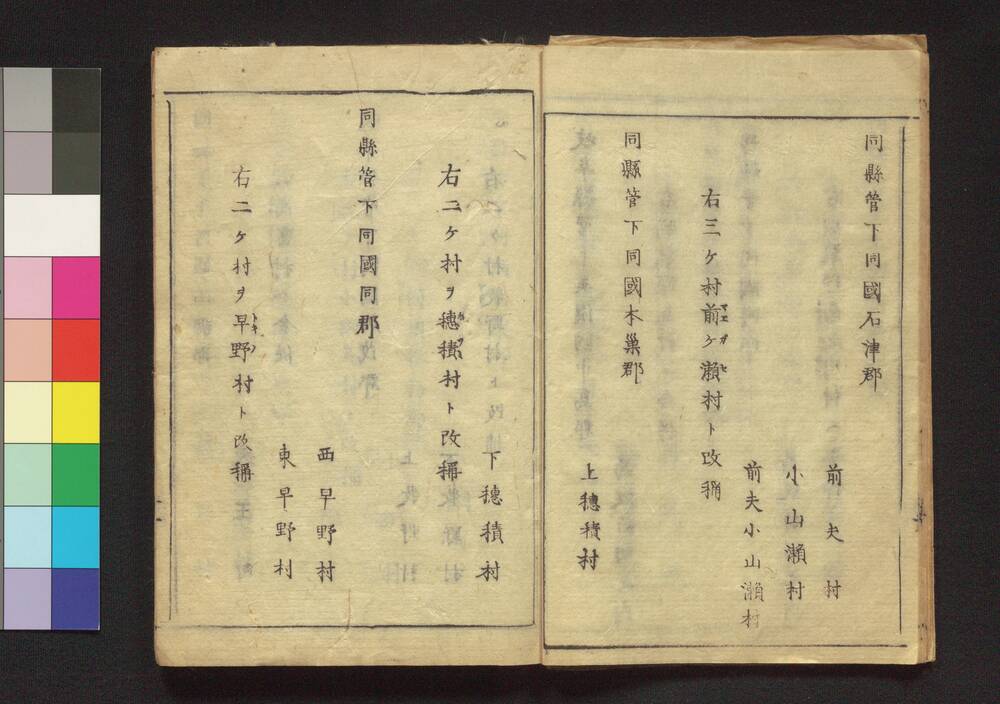 同縣管下同國石津郡
前夫村
小山瀨村
前夫小山瀨村
右三ケ村前ケ瀨村ト改稱
同縣管下同國本巢郡
上穗積村
下穗積村
右二ケ村ヲ穗積村ト改稱
同縣管下同國同郡
西早野村
東早野村
右二ケ村ヲ早野村ト改稱